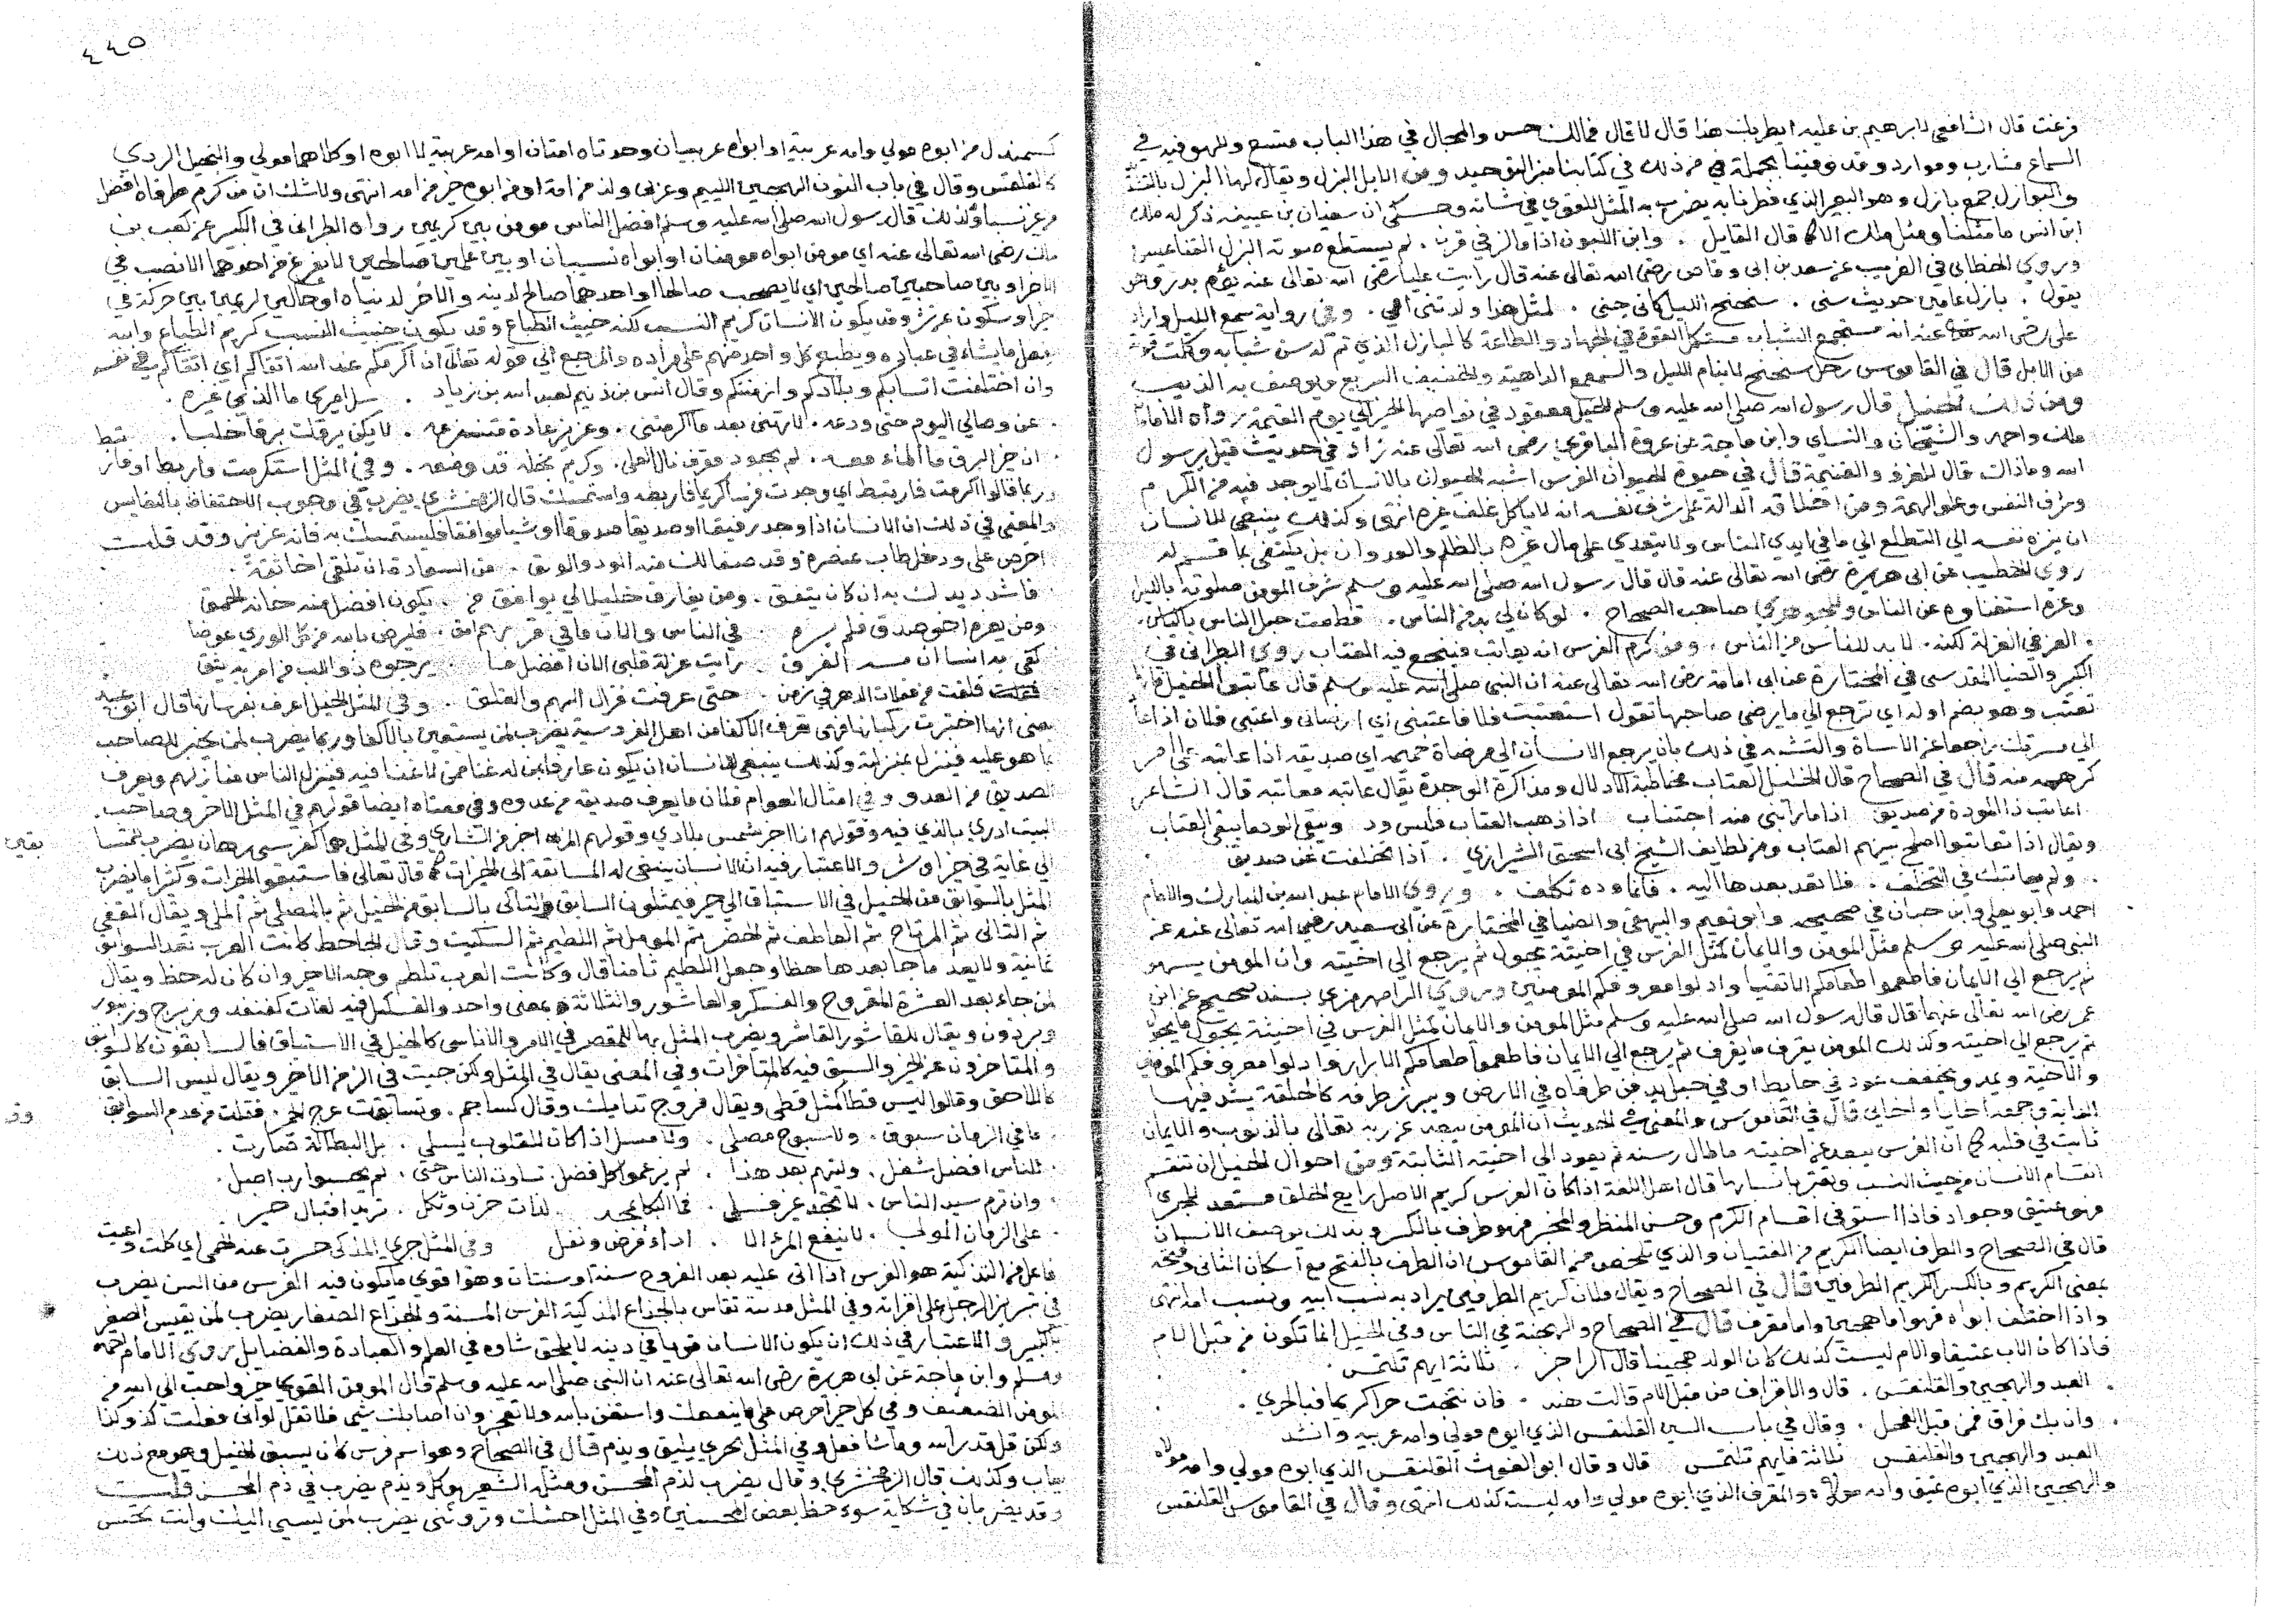 فرغت قال الشافعي لابرهيم بن عليه ايطربك هذا قال لا قال فمالك حس والمجال في هذا الباب متسع وللهو فيه في
السماع مشارب وموارد وقد وفينا بجملة من ذلك في كتابنا منبر التوحيد ومن الابل البزل ويقال لها البزل
والبوازل جمع بازل وهو البعير الذي فطر نابه يضرب به المثل للقوي في شانه وحكى ان سفيان بن عيينه ذكر له مالك
ابن انس ما مثلنا ومثل مالك الا كما قال القايل . وابن اللبون اذا ما لز في قرن . لم يستطع صولة البزل القناعيس
وروى الخطابي في الغريب عن سعد بن ابى وقاص رضى الله تعالى عنه قال رايت عليا رضى الله تعالى عنه يوم بدر وهو
يقول . بازل عامين حديث سنى . سنحنح الليل كانى جنى . لمثل هذا ولدتنى امى . وفي رواية سمع الليل واراد
على رضى الله عنه انه مستجمع الشباب مستكمل القوة في الجهاد والطاعة كالبازل الذي تم له سن شبابه وكملت قوته
من الابل قال في القاموس رجل سنحنح لا ينام الليل والسمع الداهية والخفيف السريع ويوصف به الذيب
ومن ذلك الخيل قال رسول الله صلى الله عليه وسلم الخيل معقود في نواصيها الخير الى يوم القيمة رواه الامام
مالك واحمد والشيخان والنساى وابن ماجة عن عروة البارقي رضى الله تعالى عنه زاد في حديث قيل يرسول
الله وما ذاك قال الغزو والغنيمة قال في حيوة الحيوان الفرس اشبه الحيوان بالانسان لما يوجد فيه من الكرم
وشرف النفس وعلو الهمة ومن اخلاقه الدالة على شرف نفسه انه لا ياكل علف غيره انتهى وكذلك ينبغى للانسان
ان ينزه نفسه الى التطلع الى ما في ايدي الناس ولا يتعدى على مال غيره بالظلم والعدوان بل يكتفى بما قسم له
روى الخطيب عن ابى هريرة رضى الله تعالى عنه قال قال رسول الله صلى الله عليه وسلم شرف المومن صلوته بالليل
وعزه استغناوه عن الناس وللجوهري صاحب الصحاح . لو كان لى بد من الناس . قطعت حبل الناس بالياس.
. العز في العزلة لكنه . لا بد للناس من الناس . ومن كرم الفرس انه يعاتب فينجع فيه العتاب روى الطبرانى في
الكبير والضيا المقدسى في المختارة عن ابى امامة رضى الله تعالى عنه ان النبى صلى الله عليه وسلم قال عاتبوا الخيل فانها
تعتب وهو بضم اوله اي ترجع الى ما يرضى صاحبها تقول استعتبت فلانا فاعتبنى اي ارضانى واعتبى فلان اذا عاد
الى مسرتك راجعا عن الاساة والتشبه في ذلك بان يرجع الانسان الى مرضاة حميمه اي صديقه اذا عاتبه على امر
كرهه منه قال في الصحاح قال الخليل العتاب مخاطبة الادلال ومذاكرة الموجدة يقال عاتبه معاتبه قال الشاعر
اعاتب ذا المودة من صديق اذا ما رابنى منه اجتناب اذا ذهب العتاب فليس ود ويبقى الود ما بقى العتاب
ويقال اذا تعاتبوا اصلح بينهم العتاب ومن لطايف الشيخ ابى اسحق الشيرازي . اذا تخلفت عن صديق
. ولم يعاتبك في التخلف . فلا تعد بعدها اليه . فانما وده تكلف . وروى الامام عبد الله بن المبارك والامام
احمد وابو يعلى وابن حبان في صحيحه وابو نعيم والبيهقى والضيا في المختارة عن ابى سعيد رضى الله تعالى عنه عن
النبى صلى الله عليه وسلم مثل المومن والايمان كمثل الفرس في اخيته يجول ثم يرجع الى اخيته وان المومن يسهو
ثم يرجع الى الايمان فاطعموا طعامكم الاتقيا واولوا معروفكم المومنين وروى الرامهرمزي بسند صحيح عن ابن
عمر رضى الله تعالى عنهما قال قال رسول الله صلى الله عليه وسلم مثل المومن والايمان كمثل الفرس في اخيته يجول ما يجول
ثم يرجع الى اخيته وكذلك المومن يقرف ما يقرف ثم يرجع الى الايمان فاطعموا طعامكم الابرار واولوا معروفكم المومنين
والاخية ويمد ويخفف عود في حايط او في حبل يدفن طرفاه في الارض ويبرز طرفه كالحلقة يشد فيها
الدابة وجمعه اخايا واخاى قال في القاموس والمعنى في الحديث ان المومن يبعد عن ربه تعالى بالذنوب والايمان
ثابت في قلبه كما ان الفرس يبعد عن اخيته ما طال رسنه ثم يعود الى اخيته الثابتة ومن احوال الخيل ان تنقسم
انقسام الانسان من حيث النسب وتعتبر بانسابها قال اهل اللغة اذا كان الفرس كريم الاصل رايع الخلق مستعد للجري
فهو عتيق وجواد فاذا استوفى اقسام الكرم وحسن المنظر والمخبر فهو طرف بالكسر وبذلك يوصف الانسان
قال في الصحاح والطرف ايضا الكريم من الفتيان والذي تلخص من القاموس ان الطرف بالفتح مع اسكان الثانى وفتحه
بمعنى الكريم وبالكسر الكريم الطرفين قال في الصحاح ويقال فلان كريم الطرفين يراد به نسب ابيه ونسب امه انتهى
واذا اختلف ابواه فهو اما هجين واما مقرف قال في الصحاح والهجنة في الناس وفي الخيل انما تكون من قبل الام
فاذا كان الاب عتيقا والام ليست كذلك كان الولد هجينا قال الراجز . ثلاثة ايهم تلتمس .
. العبد والهجين والفلنقس . قال والاقراف من قبل الام قالت هند . فان نتجت حرا كريما فبالحري .
. وان يك اقراف فمن قبل الفحل . وقال في باب السين الفلنقس الذي ابوه مولى وامه عربيه وانشد
العبد والهجين والفلنقس ثلاثة فايهم تلتمس قال وقال ابو الغوث الفلنقس الذي ابوه مولى وامه مولاه
والهجين الذي ابوه عتيق وامه مولاة والمقرف الذي ابوه مولى وامه ليست كذلك انتهى وقال في القاموس الفلنقس
٤٤٥
كسمندل من ابوه مولى وامه عربية او ابواه عربيان وجدتاه امتان او امه عربية لا ابوه او كلاهما مولى والبخيل الردي
كالفلقس وقال في باب النون الهجين اللييم وعربى ولد من امة او من ابوه خير من امه انتهى ولا شك ان من كرم طرفاه افضل
من غيره نسبا ولذلك قال رسول الله صلى الله عليه وسلم افضل الناس مومن بين كريمين رواه الطبرانى في الكبير عن كعب بن
مالك رضى الله تعالى عنه اي مومن ابواه مومنان او ابواه نسيبان او بين عملين صالحين لا يفرغ من احدهما الا نصب في
الاخر او بين صاحبين صالحين اي لا يصحب صالحا او احدهما صالح لدينه والاخر لدنياه او حالين كريمين بين حركة في
خير او سكون عن شر وقد يكون الانسان كريم النسب لكنه خبيث الطباع وقد يكون خبيث النسب كريم الطباع والله
يفعل ما يشاء في عباده ويطبع كل واحد منهم على مراده والمرجع الى قوله تعالى ان اكرمكم عند الله اتقاكم اي اتقاكم في نفسه
وان اختلفت انسابكم وبلادكم وازمنتكم وقال انس بن زنيم لعبيد الله بن زياد . سل اميري ما الذي غيره .
. عن وصالى اليوم حتى ودعه . لا تهنى بعد ما اكرمتنى . وعزيز عادة منتزعه . لا يكن برقك برقا خلبا .
. ان خير البرق ما الماء معه . لم يجود معرف نال العلى . وكريم بخله قد وضعه . وفي المثل استكرمت فاربط او فار تبط
وربما قالوا اكرمت فارتبط اي وجدت فرسا كريما فاربطه واستمسك قال الزمخشري يضرب في وجوب الاحتفاظ بالنفايس
والمعنى في ذلك ان الانسان اذا وجد رفيقا او صديقا صدوقا او شيا موافقا فليستمسك به فانه عزيز وقد قلت
احرص على ود من طاب عنصره وقد صفا لك منه الود والوثق . من السعادة ان تلقى اخا ثقة .
. فاشدد يديك به ان كان يتفق . ومن يفارق خليلا لى يوافق . يكون افضل منه خانه الحمق
كفى به انسا ان مسه الفرق . رايت عزلة قلبى الان افضل ما . يرجوه ذو اللب من امر به يثق
قلقت من غفلات الدهر في زمن . حتى عرفت فزال الهم والقلق . وفي المثل الخيل اعرف بفرسانها قال ابو عبيد
يعنى انها اختبرت ركبانها فهى تعرف الاكفا من اهل الفروسية يضرب لمن يستعين بالاكفا وربما يضرب لمن يخبر الصاحب
بما هو عليه فينزل بمنزلته وكذلك ينبغى للانسان ان يكون عارفا بمن له غنا ممن لا غنا فيه فينزل الناس منازلهم ويعرف
الصديق من العدو وفي امثال العوام فلان ما يعرف صديقه من عدوه وفي معناه ايضا قولهم في المثل الاخر وصاحب
البيت ادرى بالذي فيه وقولهم انا اخبر بشمس بلادي وفي المثل هما كفرسى رهان يضرب للمتسا
بقين
الى غاية في خير او شر والاعتبار فيه ان الانسان ينبغى له المسابقة الى الخيرات كما قال تعالى فاستبقوا الخيرات وكثيرا ما يضرب
المثل بالسوابق من الخيل في الاستباق الى خير فيمثلون السابق والتالى بالسابق من الخيل ثم بالمصلى ثم المسلى ويقال المقفى
ثم التالى ثم المرتاح ثم العاطف ثم الحضى ثم المومل ثم اللطيم ثم السكيت وقال الجاحظ كانت العرب تعد السوابق
ثمانية ولا يعد ما جا بعدها حظا وجعل اللطيم ثامنا قال وكانت العرب تلطم وجه الاخير وان كان له حظ ويقال
لمن جاء بعد العشرة المقروح والفسكل والقاشور والثلاثة بمعنى واحد والفسكل فيه لغات كقنفد وزبرج وزنبور
وبرذون ويقال للقاشور القاشر ويضرب المثل بها للمقصر في الامر والناس كالخيل في الاستباق فالسابقون كالسوابق
والمتاخرون عن الخير والسبق فيه كالمتاخرات وفي المعنى يقال في المثل ولكن جيت في الزمن الاخير ويقال ليس السابق
كاللاحق وقالوا ليس قطا كمثل قطى وقال كساجم . وتسابقت عرج الحمر . فقلت من عدم السوابق
وقد
. ما في الزمان سبوق . ولا سبوح مصلى . ولا مسل اذا كان للقلوب يسلى . بل البطالة صارت .
. للناس افضل شغل . وليتهم بعد هذا . لم يزعموا كل فضل . تساوت الناس حتى . لم يحسبوا رب اصل .
. وان ترم سيد الناس . لا تجد غير فسكل . فما البكا بمجد . لذات حزن وثكل . تريد اقبال خير .
. على الزمان المولى . لا ينفع المرء الا . اداء فرض ونفل وفي المثل جري المذكى حسرت عنه الحمر اي كلت واعيت
فاعل من التذكية هو الفرس اذا اتى عليه بعد القروح سنة او سنتان وهو اقوى ما يكون فيه الفرس من السن يضرب
في تبريز الرجل على اقرانه وفي المثل مذكية تقاس بالجذاع المذكية الفرس المسنة والجذاع الصغار يضرب لمن يقيس الصغير
بالكبير والاعتبار في ذلك ان يكون الانسان قويا في دينه لا يلحق شاوه في العلم والعبادة والفضايل روى الامام احمد
ومسلم وابن ماجة عن ابى هريرة رضى الله تعالى عنه ان النبى صلى الله عليه وسلم قال المومن القوي خير واحب الى الله من
المومن الضعيف وفي كل خير احرص على ما ينفعك واستعن بالله ولا تعجز وان اصابك شى فلا تقل لو انى فعلت كذا وكذا
ولكن قل قدر الله وما شا فعل وفي المثل يجري بليق ويذم قال في الصحاح وهو اسم فرس كان يسبق الخيل وهو مع ذلك
يعاب وكذلك قال الزمخشري وقال يضرب لذم المحسن ومثله الشعير يوكل ويذم يضرب في ذم المحسن قلت
وقد يضربان في شكاية سوء حظ بعض المحسنين وفي المثل احشك وتروثنى يضرب لمن يسيى اليك وانت تحسن